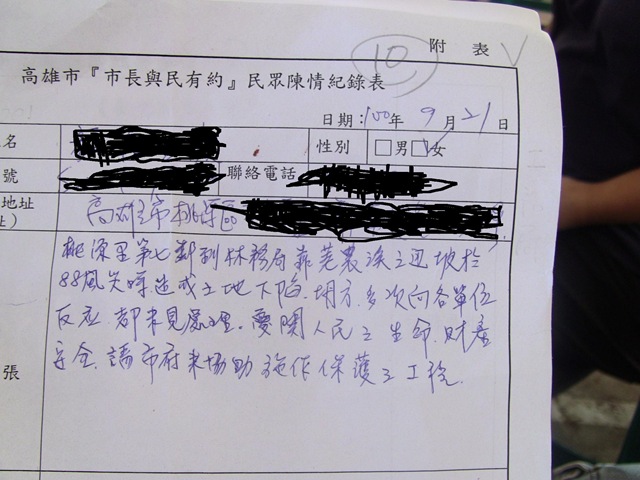 10
附表
高雄市『市長與民有約』民眾陳情紀錄表
日期：100年9月21日
名
性別 □男□女
號
聯絡電話
地址 高雄市桃源區
桃源里第七鄰到林務局靠荖農溪之邊坡於
88風災時造成土地下陷,地方多次向各單位
反应,都未見處理。攸關人民之生命.財產
安全.請市府來協助施作保護之工程.
張